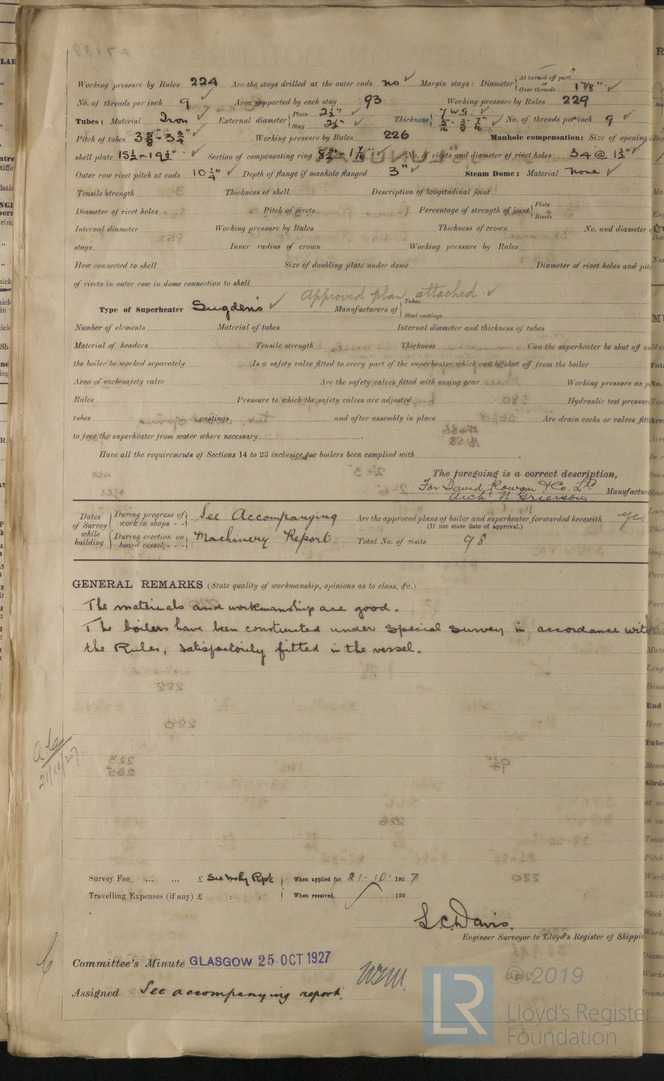 Working pressure by Rules 224 Are the stays drilled at the outer ends no ✓ Margin stays: Diameter { At turned off part, or Over threads 1⅞" ✓
No. of threads per inch 9 ✓ Area supported by each stay 93 Working pressure by Rules 229
Tubes: Material Iron ✓ External diameter { Plain 2½" ✓ Stay 2½" ✓ Thickness { 7 W.G. ✓ 5/16 - 3/8 - 7/16 ✓ No. of threads per inch 9 ✓
Pitch of tubes 3⅝ - 3¾" ✓ Working pressure by Rules 226 Manhole compensation: Size of opening
shell plate 15½ - 19½" ✓ Section of compensating ring No. of rivets and diameter of rivet holes 34 @ ✓
Outer row rivet pitch at ends 10¼" ✓ Depth of flange if manhole flanged 3" ✓ Steam Dome: Material None ✓
Tensile strength Thickness of shell Description of longitudinal joint
Diameter of rivet holes Pitch of rivets Percentage of strength of joint { Plate Rivets
Internal diameter Working pressure by Rules Thickness of crown No. and diameter
stays Inner radius of crown Working pressure by Rules
How connected to shell Size of doubling plate under dome Diameter of rivet holes and
of rivets in outer row in dome connection to shell
Approved plan attached ✓
Type of Superheater Sugden's ✓ Manufacturers of { Tubes Steel castings
Number of elements Material of tubes Internal diameter and thickness of tubes
Material of headers Tensile strength Thickness Can the superheater be shut off
the boiler be worked separately Is a safety valve fitted to every part of the superheater which can be shut off from the boiler
Area of each safety valve Are the safety valves fitted with easing gear Working pressure as
Rules Pressure to which the safety valves are adjusted Hydraulic test pressure
tubes castings and after assembly in place Are drain cocks or valves
to free the superheater from water where necessary
Have all the requirements of Sections 14 to 23 inclusive for boilers been complied with
The foregoing is a correct description,
For David Rowan & Co. Ltd
Archd. N. Grierson Manufacturer
Dates of Survey while building { During progress of work in shops - - } See Accompanying Are the approved plans of boiler and superheater forwarded herewith yes
(If not state date of approval.)
{ During erection on board vessel - - - } Machinery Report Total No. of visits 98
GENERAL REMARKS (State quality of workmanship, opinions as to class, &c.)
The materials and workmanship are good.
The boilers have been constructed under special survey in accordance with
the Rules, satisfactorily fitted in the vessel.
21/10/27.
Survey Fee ... ... £ See Mchy Rpt } When applied for, 21-10- 1927
Travelling Expenses (if any) £ : : } When received, 192
L.C. Davis.
Engineer Surveyor to Lloyd's Register of Shipping
Committee's Minute GLASGOW 25 OCT 1927
Assigned See accompanying report.
LR © 2019
Lloyd's Register
Foundation